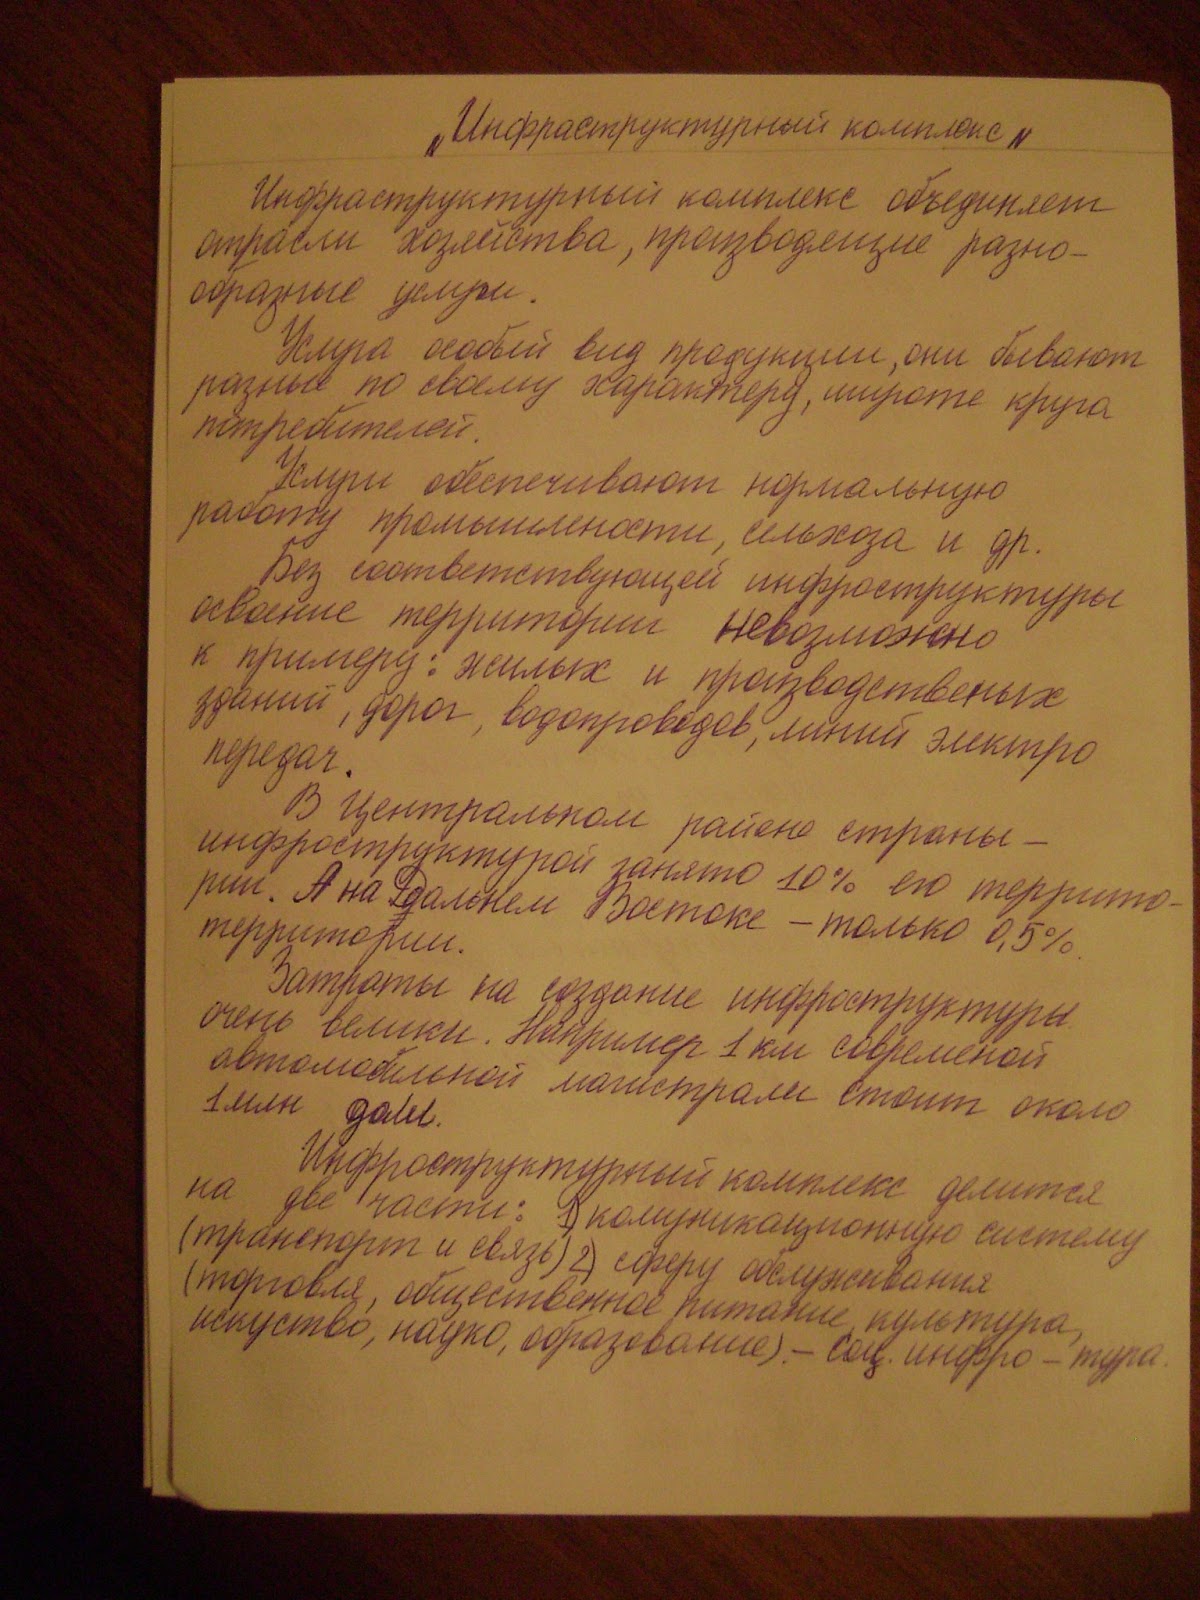 „Инфраструктурный комплекс„
Инфраструктурный комплекс объединяет
отрасли хозяйства, производящие разно-
образные услуги.
Услуга особый вид продукции, они бывают
разные по своему характеру, широте круга
потребителей.
Услуги обеспечивают нормальную
работу промышлености, сельхоза и др.
Без соответствующей инфроструктуры
освоение территории невозможно
к примеру: жилых и производственых
зданий, дорог, водопроводов, линий электро
передач.
В Центральном районе страны –
инфроструктурой занято 10% его террито-
рии. А на Дальнем Востоке – только 0,5%
территории.
Затраты на создание инфроструктуры
очень велики. Например 1 км современой
автомобильной магистрали стоит около
1 млн долл.
Инфроструктурный комплекс делится
на две части: 1) комуникационную систему
(транспорт и связь) 2) сферу обслуживания
(торговля, общественное питание, культура,
искуство, науко, образование). – Соц. инфро – тура.